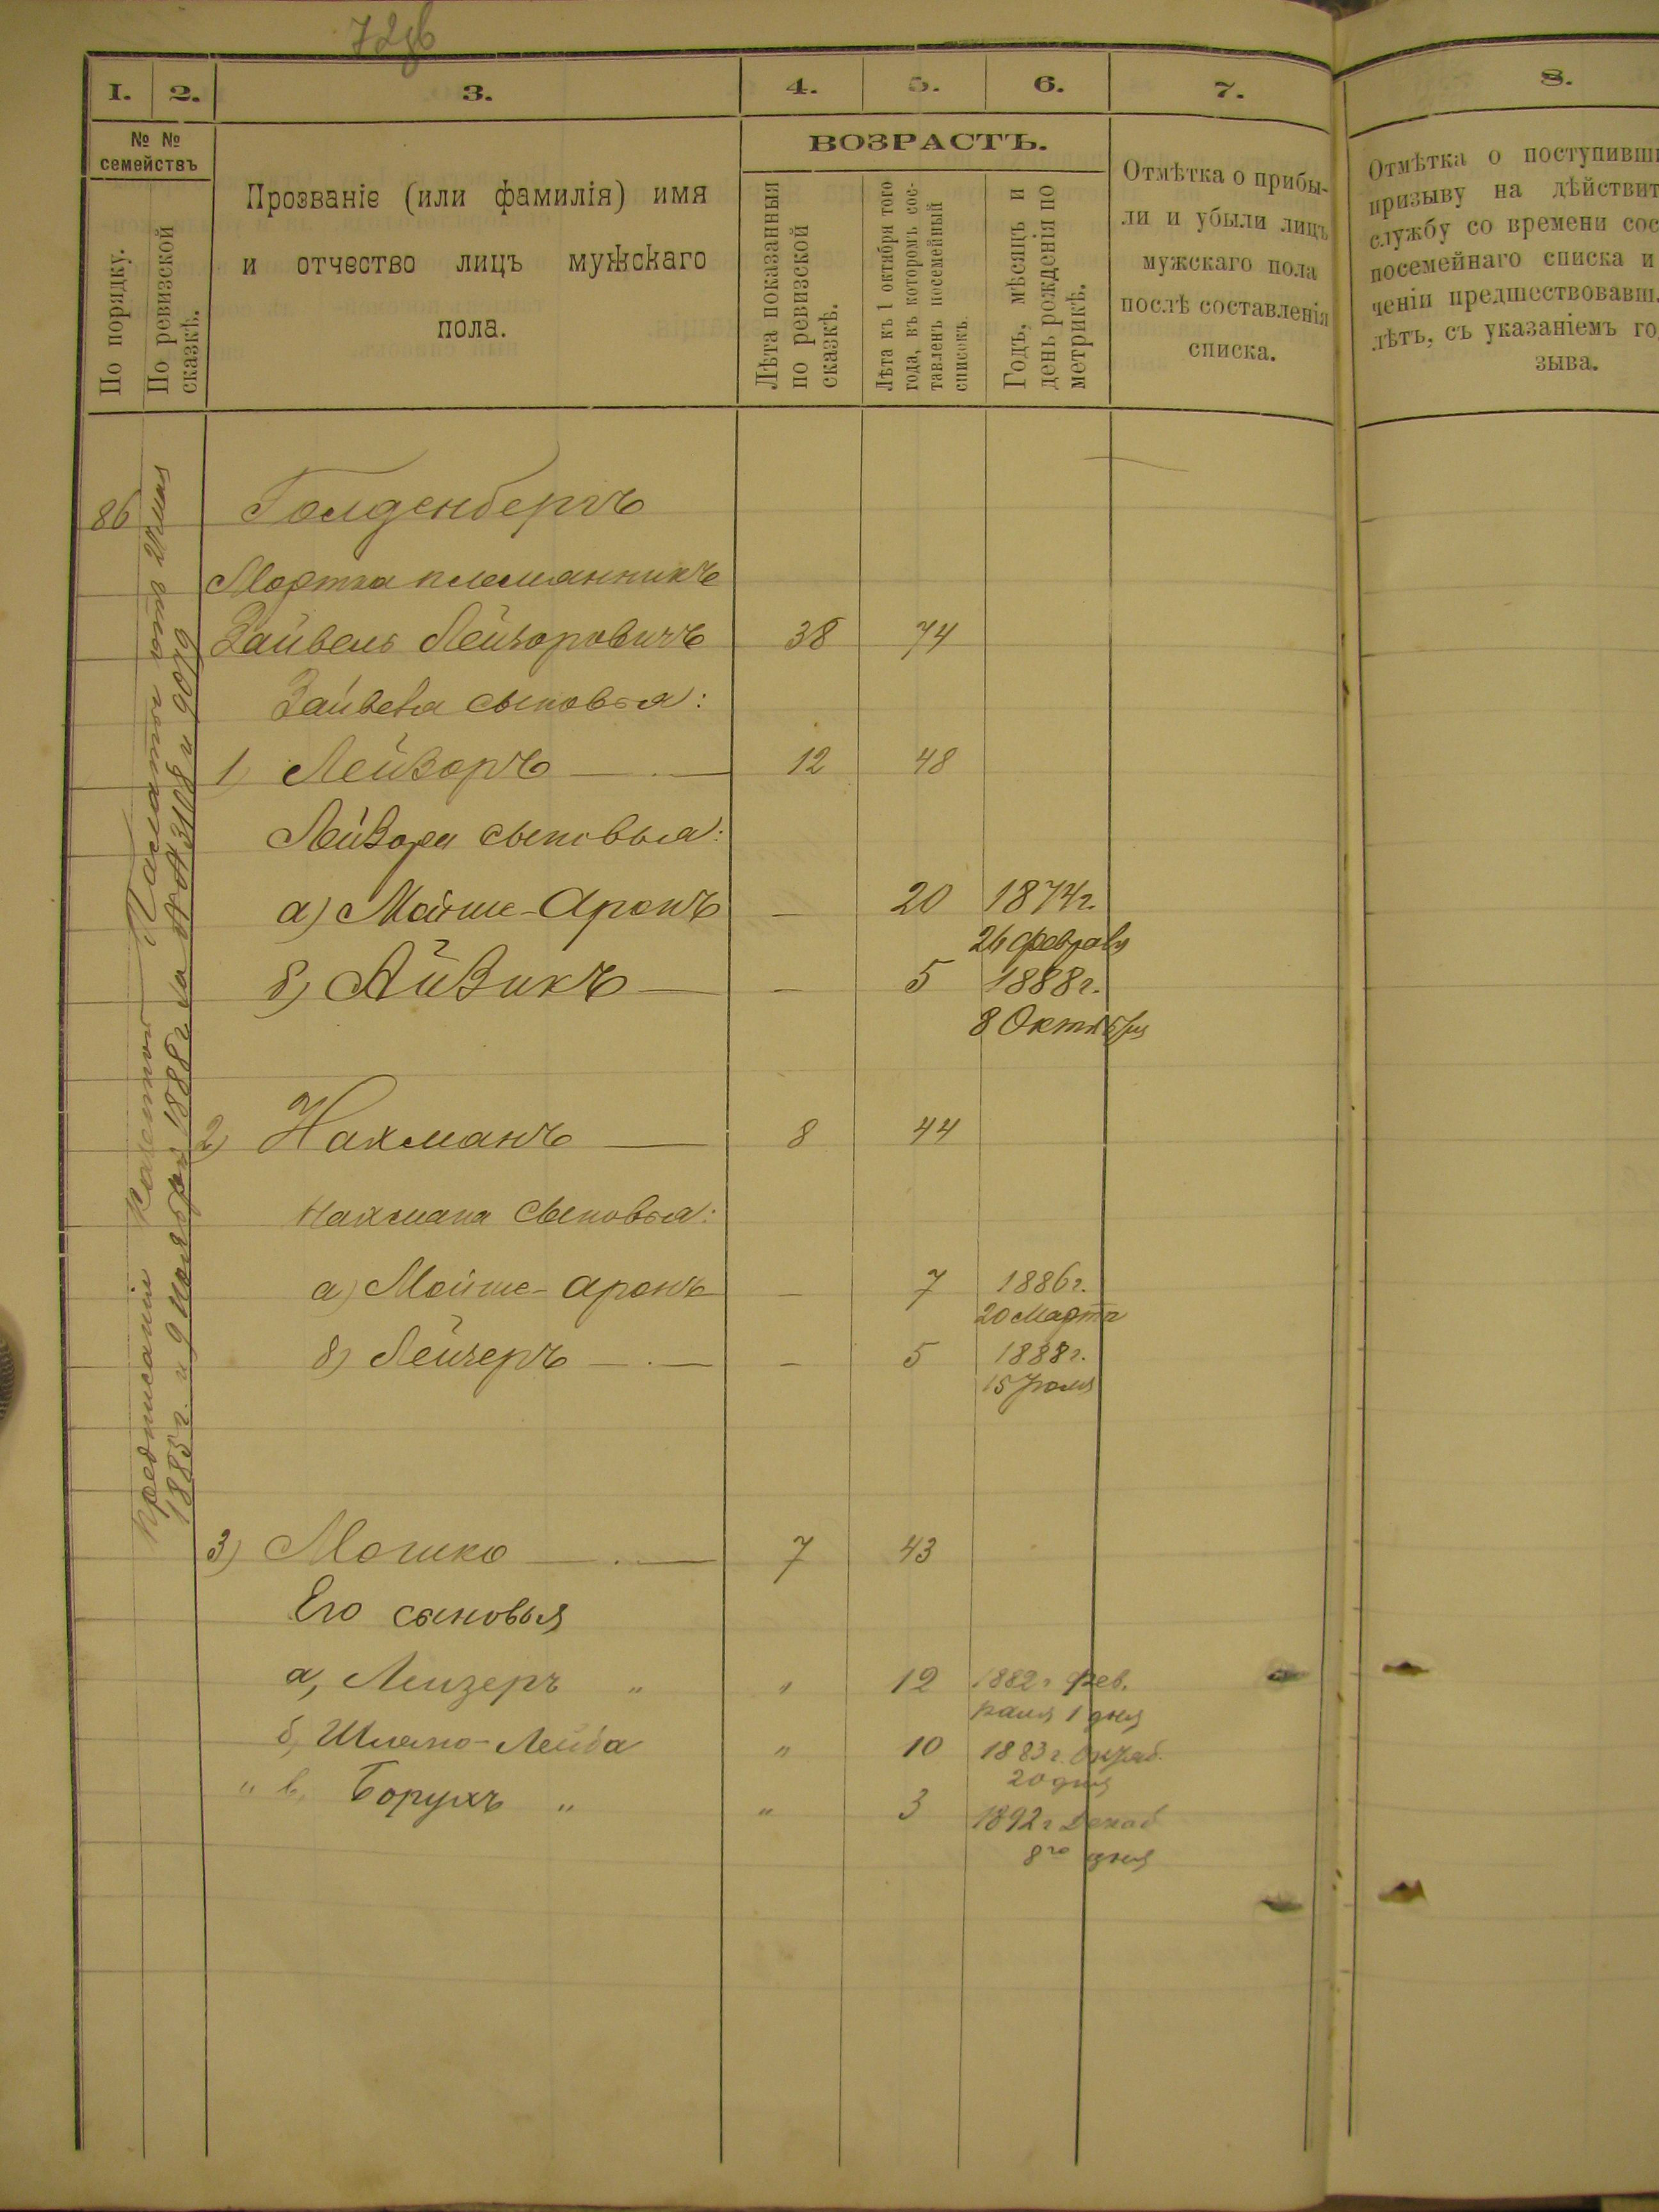 72об
1. 2. 3. 4. 5. 6. 7. 8.
№ №
семействъ
По порядку.
По ревизской
сказкѣ.
Прозваніе (или фамилія) имя
и отчество лицъ мужскаго
пола.
ВОЗРАСТЪ.
Лѣта показанныя
по ревизской
сказкѣ.
Лѣта къ 1 октября того
года, въ которомъ сос-
тавленъ посемейный
списокъ.
Годъ, мѣсяцъ и
день рожденія по
метрикѣ.
Отмѣтка о прибы-
ли и убыли лицъ
мужскаго пола
послѣ составленія
списка.
Отмѣтка о поступивши
призыву на дѣйствит
службу со времени сос
посемейнаго списка и
ченіи предшествовавш
лѣтъ, съ указаніемъ го
зыва.
86 Голденбергъ
Мортка племянникъ
Зайвель Лейзоровичъ 38 74
Зайвеля сыновья:
1) Лейзоръ — 12 48
Лейзора сыновья:
а) Мойше-Аронъ — 20 1874г.
26 февраля
б) Айзикъ — — 5 1888г.
8 Октября
2) Нахманъ — 8 44
Нахмана сыновья:
а) Мойше-Аронъ — 7 1886г.
20 Марта
б) Лейзеръ — — 5 1888г.
15 Іюля
3) Мошко — 7 43
Его сыновья
а, Лейзеръ " " 12 1882г Фев.
раля 1 дня
б, Шлемо-Лейба " 10 1883г. Октяб.
20 дня
" в, Борухъ " " 3 1892г Декаб
8го дня
Предписаніе Казенной Палаты отъ
1885г. и 9 ноября 1888г. за №№ 3108 и 9079